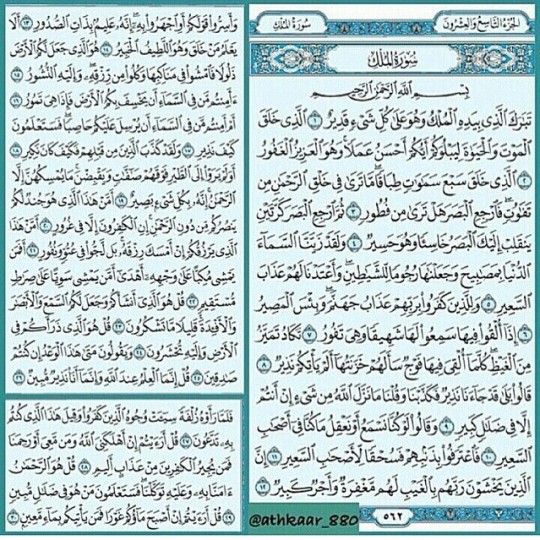 الجزء التاسع والعشرون
سورة الملك
سُورَةُ المُلْكِ
بِسْمِ اللَّهِ الرَّحْمَٰنِ الرَّحِيمِ
تَبَٰرَكَ الَّذِي بِيَدِهِ الْمُلْكُ وَهُوَ عَلَىٰ كُلِّ شَيْءٍ قَدِيرٌ ١ الَّذِي خَلَقَ
الْمَوْتَ وَالْحَيَوٰةَ لِيَبْلُوَكُمْ أَيُّكُمْ أَحْسَنُ عَمَلًا وَهُوَ الْعَزِيزُ الْغَفُورُ
٢ الَّذِي خَلَقَ سَبْعَ سَمَٰوَٰتٍ طِبَاقًا مَّا تَرَىٰ فِي خَلْقِ الرَّحْمَٰنِ مِن
تَفَٰوُتٍ فَارْجِعِ الْبَصَرَ هَلْ تَرَىٰ مِن فُطُورٍ ٣ ثُمَّ ارْجِعِ الْبَصَرَ كَرَّتَيْنِ
يَنقَلِبْ إِلَيْكَ الْبَصَرُ خَاسِئًا وَهُوَ حَسِيرٌ ٤ وَلَقَدْ زَيَّنَّا السَّمَاءَ
الدُّنْيَا بِمَصَٰبِيحَ وَجَعَلْنَٰهَا رُجُومًا لِّلشَّيَٰطِينِ وَأَعْتَدْنَا لَهُمْ عَذَابَ
السَّعِيرِ ٥ وَلِلَّذِينَ كَفَرُوا بِرَبِّهِمْ عَذَابُ جَهَنَّمَ وَبِئْسَ الْمَصِيرُ
٦ إِذَا أُلْقُوا فِيهَا سَمِعُوا لَهَا شَهِيقًا وَهِيَ تَفُورُ ٧ تَكَادُ تَمَيَّزُ
مِنَ الْغَيْظِ كُلَّمَا أُلْقِيَ فِيهَا فَوْجٌ سَأَلَهُمْ خَزَنَتُهَا أَلَمْ يَأْتِكُمْ نَذِيرٌ ٨
قَالُوا بَلَىٰ قَدْ جَاءَنَا نَذِيرٌ فَكَذَّبْنَا وَقُلْنَا مَا نَزَّلَ اللَّهُ مِن شَيْءٍ إِنْ أَنتُمْ
إِلَّا فِي ضَلَٰلٍ كَبِيرٍ ٩ وَقَالُوا لَوْ كُنَّا نَسْمَعُ أَوْ نَعْقِلُ مَا كُنَّا فِي أَصْحَٰبِ
السَّعِيرِ ١٠ فَاعْتَرَفُوا بِذَنبِهِمْ فَسُحْقًا لِّأَصْحَٰبِ السَّعِيرِ ١١ إِنَّ
الَّذِينَ يَخْشَوْنَ رَبَّهُم بِالْغَيْبِ لَهُم مَّغْفِرَةٌ وَأَجْرٌ كَبِيرٌ ١٢
٥٦٢
وَأَسِرُّوا قَوْلَكُمْ أَوِ اجْهَرُوا بِهِ إِنَّهُ عَلِيمٌ بِذَاتِ الصُّدُورِ ١٣ أَلَا
يَعْلَمُ مَنْ خَلَقَ وَهُوَ اللَّطِيفُ الْخَبِيرُ ١٤ هُوَ الَّذِي جَعَلَ لَكُمُ الْأَرْضَ
ذَلُولًا فَامْشُوا فِي مَنَاكِبِهَا وَكُلُوا مِن رِّزْقِهِ وَإِلَيْهِ النُّشُورُ ١٥
ءَأَمِنتُم مَّن فِي السَّمَاءِ أَن يَخْسِفَ بِكُمُ الْأَرْضَ فَإِذَا هِيَ تَمُورُ ١٦
أَمْ أَمِنتُم مَّن فِي السَّمَاءِ أَن يُرْسِلَ عَلَيْكُمْ حَاصِبًا فَسَتَعْلَمُونَ
كَيْفَ نَذِيرِ ١٧ وَلَقَدْ كَذَّبَ الَّذِينَ مِن قَبْلِهِمْ فَكَيْفَ كَانَ نَكِيرِ ١٨
أَوَلَمْ يَرَوْا إِلَى الطَّيْرِ فَوْقَهُمْ صَٰفَّٰتٍ وَيَقْبِضْنَ مَا يُمْسِكُهُنَّ إِلَّا
الرَّحْمَٰنُ إِنَّهُ بِكُلِّ شَيْءٍ بَصِيرٌ ١٩ أَمَّنْ هَٰذَا الَّذِي هُوَ جُندٌ لَّكُمْ
يَنصُرُكُم مِّن دُونِ الرَّحْمَٰنِ إِنِ الْكَٰفِرُونَ إِلَّا فِي غُرُورٍ ٢٠ أَمَّنْ هَٰذَا
الَّذِي يَرْزُقُكُمْ إِنْ أَمْسَكَ رِزْقَهُ بَل لَّجُّوا فِي عُتُوٍّ وَنُفُورٍ ٢١ أَفَمَن
يَمْشِي مُكِبًّا عَلَىٰ وَجْهِهِ أَهْدَىٰ أَمَّن يَمْشِي سَوِيًّا عَلَىٰ صِرَٰطٍ
مُّسْتَقِيمٍ ٢٢ قُلْ هُوَ الَّذِي أَنشَأَكُمْ وَجَعَلَ لَكُمُ السَّمْعَ وَالْأَبْصَٰرَ
وَالْأَفْئِدَةَ قَلِيلًا مَّا تَشْكُرُونَ ٢٣ قُلْ هُوَ الَّذِي ذَرَأَكُمْ فِي
الْأَرْضِ وَإِلَيْهِ تُحْشَرُونَ ٢٤ وَيَقُولُونَ مَتَىٰ هَٰذَا الْوَعْدُ إِن كُنتُمْ
صَٰدِقِينَ ٢٥ قُلْ إِنَّمَا الْعِلْمُ عِندَ اللَّهِ وَإِنَّمَا أَنَا نَذِيرٌ مُّبِينٌ ٢٦
فَلَمَّا رَأَوْهُ زُلْفَةً سِيئَتْ وُجُوهُ الَّذِينَ كَفَرُوا وَقِيلَ هَٰذَا الَّذِي كُنتُم
بِهِ تَدَّعُونَ ٢٧ قُلْ أَرَءَيْتُمْ إِنْ أَهْلَكَنِيَ اللَّهُ وَمَن مَّعِيَ أَوْ رَحِمَنَا
فَمَن يُجِيرُ الْكَٰفِرِينَ مِنْ عَذَابٍ أَلِيمٍ ٢٨ قُلْ هُوَ الرَّحْمَٰنُ
ءَامَنَّا بِهِ وَعَلَيْهِ تَوَكَّلْنَا فَسَتَعْلَمُونَ مَنْ هُوَ فِي ضَلَٰلٍ مُّبِينٍ
٢٩ قُلْ أَرَءَيْتُمْ إِنْ أَصْبَحَ مَاؤُكُمْ غَوْرًا فَمَن يَأْتِيكُم بِمَاءٍ مَّعِينٍ ٣٠
@athkaar_880